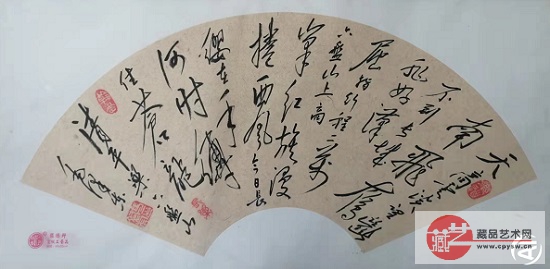 天高云淡望断
南飛雁
不到长城
非好漢
屈指行程二万
六盘山上高
峯红旗漫
捲西風今日长
缨在手
何时缚
住苍龙
清平樂
六盘山
毛泽东
藏艺
藏品艺术网
www.cpysw.cn